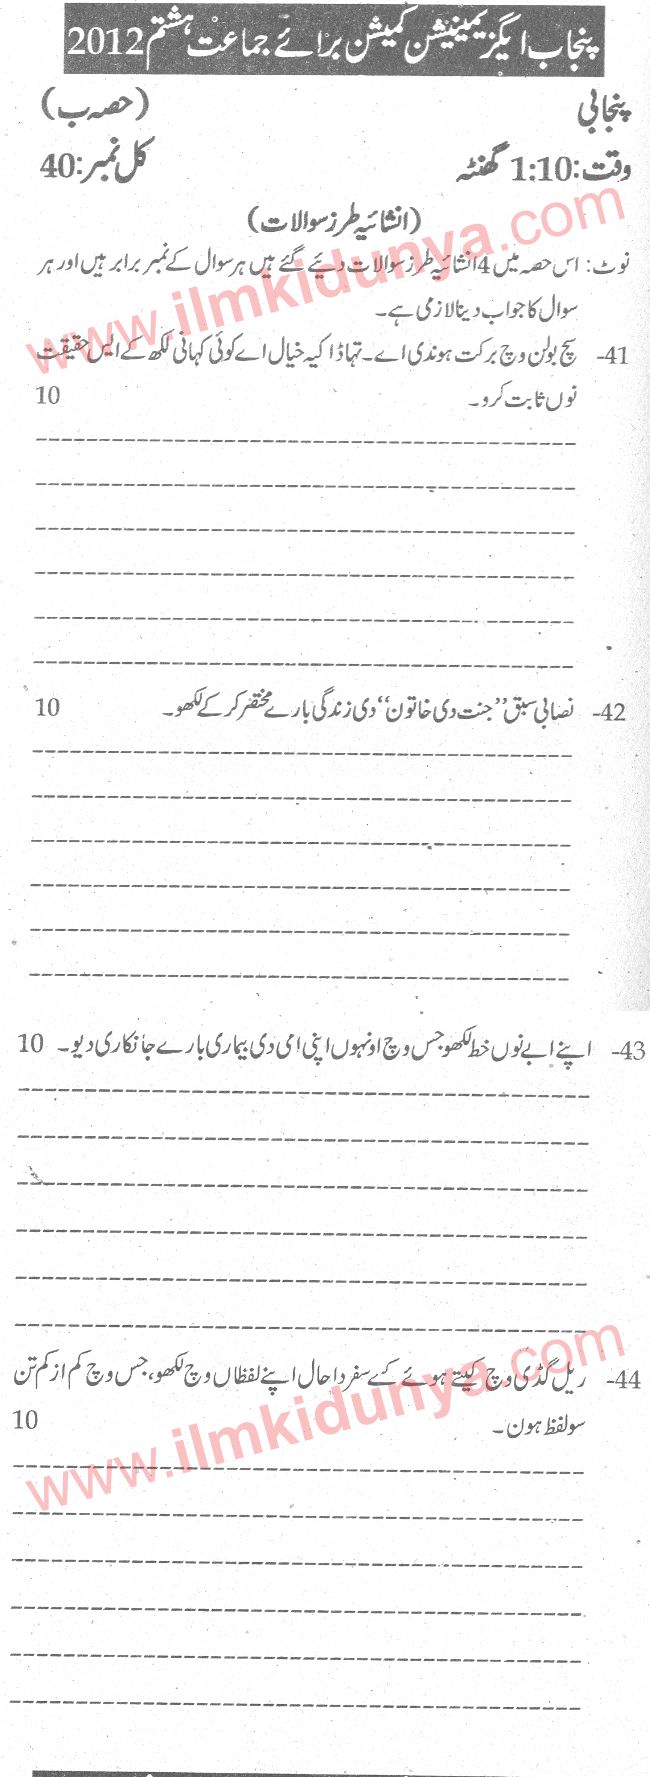 پنجاب ایگزیمینیشن کمیشن برائے جماعت ہشتم 2012
پنجابی (حصہ ب)
وقت: 1:10 گھنٹہ کل نمبر: 40
(انشائیہ طرز سوالات)
نوٹ: اس حصہ میں 4 انشائیہ طرز سوالات دئیے گئے ہیں ہر سوال کے نمبر برابر ہیں اور ہر
سوال کا جواب دینا لازمی ہے۔
www.ilmkidunya.com
41- سچ بولن وچ برکت ہوندی اے۔ تہاڈا کیہ خیال اے کوئی کہانی لکھ کے ایس حقیقت
نوں ثابت کرو۔ 10
42- نصابی سبق ”جنت دی خاتون“ دی زندگی بارے مختصر کر کے لکھو۔ 10
43- اپنے ابے نوں خط لکھو جس وچ اونہوں اپنی امی دی بیماری بارے جانکاری دیو۔ 10
44- ریل گڈی وچ کیتے ہوئے کے سفر دا حال اپنے لفظاں وچ لکھو، جس وچ کم از کم تن
سو لفظ ہون۔ 10
www.ilmkidunya.com